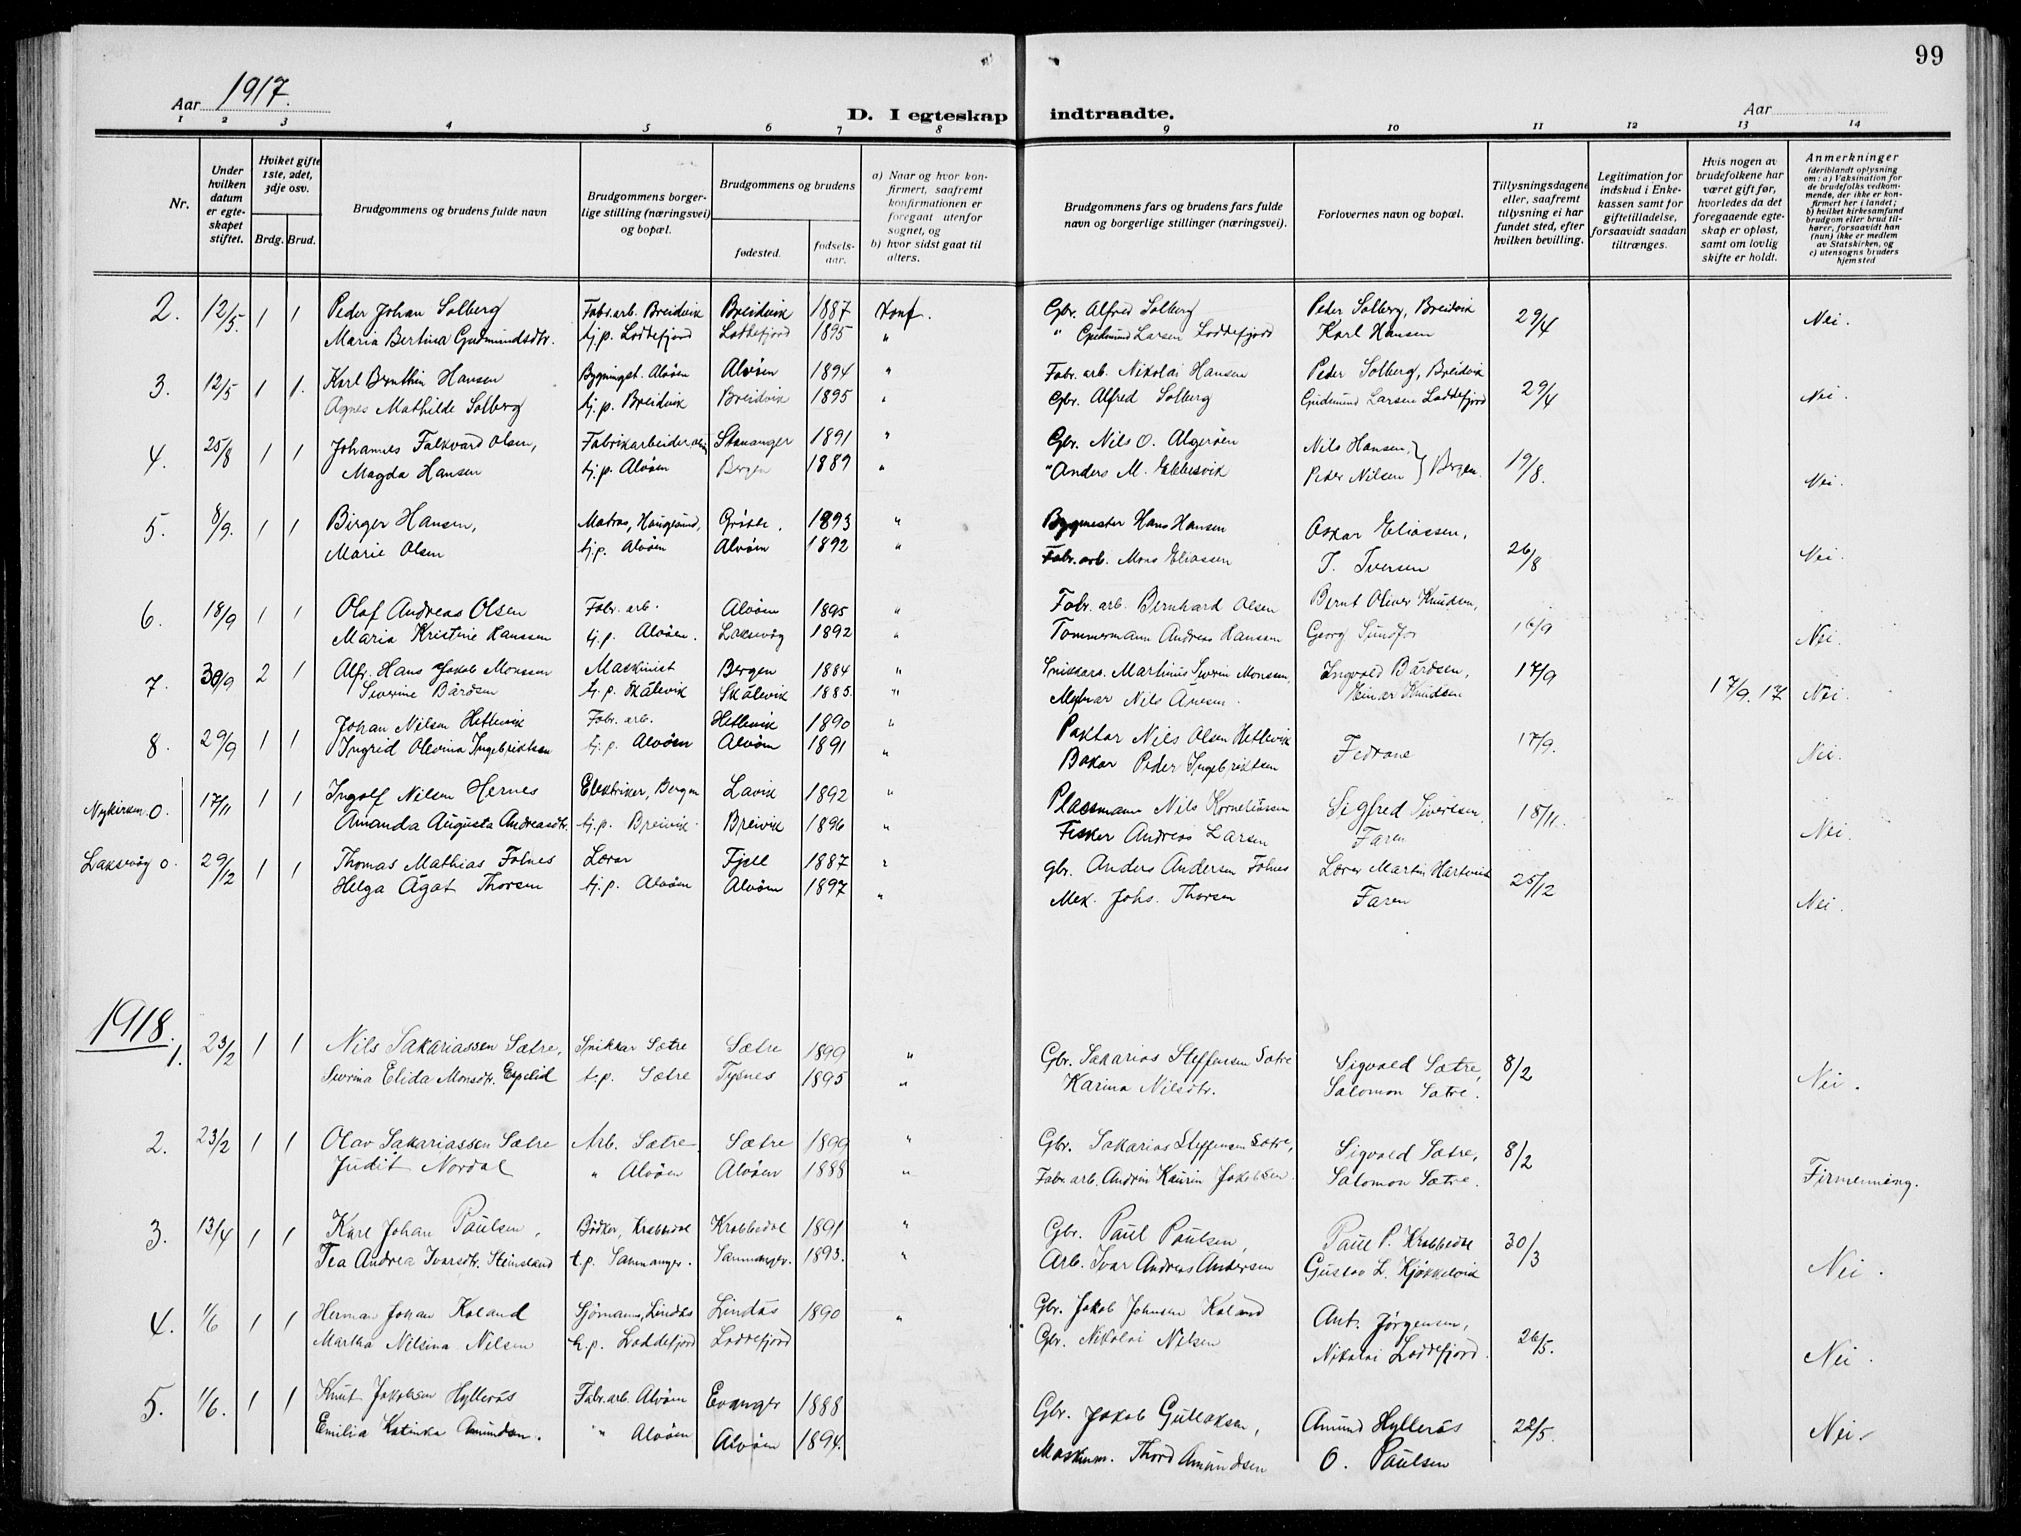 99
Aar 1917.
D. I egteskap indtraadte.
Aar
1 2 3 4 5 6 7 8 9 10 11 12 13 14
Nr.
Under hvilken datum er egteskapet stiftet.
Hvilket gifte 1ste, 2det, 3dje osv.
Brdg. Brud.
Brudgommens og brudens fulde navn
Brudgommens borgerlige stilling (næringsvei) og bopæl.
Brudgommens og brudens
fødested.
fødselsaar.
a) Naar og hvor konfirmert, saafremt konfirmationen er foregaat utenfor sognet, og
b) hvor sidst gaat til alters.
Brudgommens fars og brudens fars fulde navn og borgerlige stillinger (næringsvei).
Forlovernes navn og bopæl.
Tillysningsdagene eller, saafremt tillysning ei har fundet sted, efter hvilken bevilling.
Legitimation for indskud i Enkekassen samt for giftetilladelse, forsaavidt saadan tiltrænges.
Hvis nogen av brudefolkene har været gift før, hvorledes da det foregaaende egteskap er opløst, samt om lovlig skifte er holdt.
Anmerkninger (deriblandt oplysning om: a) Vaksination for de brudefolks vedkommende, der ikke er konfirmert her i landet; b) hvilket kirkesamfund brudgom eller brud tilhører, forsaavidt han (hun) ikke er medlem av Statskirken, og c) utensogns bruders hjemsted
2. 12/5. 1 1 Peder Johan Solberg Fabr. arb. Breidvik Breidvik 1887 Konf. Gbr. Alfred Solberg Peder Solberg, Breidvik 29/4 Nei.
Maria Bertina Gudmundsdtr. tj.p. Loddefjord Loddefjord 1895 " " Gudmund Larsen Loddefjord Karl Hansen
3. 12/5 1 1. Karl Hansen Bygningst. Alvøen Alvøen 1894 " Fabr. arb. Nikolai Hansen Peder Solberg, Breidvik 29/4 Nei.
Agnes Mathilde Solberg tj.p. Breidvik Breidvik 1895 " Gbr. Alfred Solberg Gudmund Larsen Loddefjord
4. 25/8 1 1 Johannes Falkvard Olsen, Fabrikarbeider Stavanger 1891 " Gbr. Nils O. Algerøen Nils Hansen, 19/8. Nei.
Magda Hansen tj.p. Alvøen Bergen 1889 " " Anders M. Ekkersvik Peder Nilsen } Bergen.
5. 8/9. 1 1 Birger Hansen, Matros, Haugesund, 1893 " Bygmester Hans Hansen Oskar Eliassen, 26/8 Nei.
Marie Olsen tj.p. Alvøen Alvøen 1892 " Fabr. arb. Mons Eliassen I. Iversen
6. 18/9 1 1 Olaf Andreas Olsen Fabr. arb. Alvøen 1895 " Fabr. arb. Bernhard Olsen Bernt Oliver Knudsen, 16/9 Nei.
Maria Kristine Hanssen tj.p. Alvøen. Laksevåg 1892 " Tømmermann Andreas Hanssen Georg Sundfor
7. 30/9 2 1 Alfr. Hans Jakob Monsen Maskinist Bergen 1884 " Snikkar Martinus Severin Monsen, Ingvald Bårdsen, 17/9 17/9. 17 Nei.
Severine Bårdsen tj.p. Skålevik Skålevik 1885. " Nils Einar Knudsen
8. 29/9 1 1 Johan Nilsen Hetlevik Fabr. arb. Hetlevik 1890 " Nils Olsen Hetlevik Fedrane 17/9. Nei.
Ingrid Olevina Ingebriktsen tj.p. Alvøen Alvøen 1891 " Bakar Peder Ingebriktsen
Nykirken 0. 17/11 1 1 Ingolf Nilsen Hernes Elektriker, Bergen Lavik 1892 " Plassmann Nils Korneliussen Sigfred Sivertsen, 18/11. Nei.
Amanda Augusta Andreasdtr. tj.p. Breivik. Breivik 1896 " Fisker Andreas Larsen Faren
Laksevåg 0. 29/12 1 1 Thomas Mathias Folnes Lærar Fjell 1887 " gbr. Anders Andersen Folnes Lærer Martin Hartvik 25/12 Nei.
Helga Ågot Thorsen tj.p. Alvøen Alvøen 1897 " Mek. Johs. Thorsen Faren
1918.
1. 23/2 1 1 Nils Sakariassen Sætre, Snikkar Sætre Sætre 1899 " Gbr. Sakarias Steffensen Sætre Sigvald Sætre, 8/2 Nei.
Severina Elida Monsdtr. Espelid t.p. Sætre Tysnes 1895 " Karina Nilsdtr. Salomon Sætre.
2. 23/2 1 1 Olav Sakariassen Sætre Arb. Sætre Sætre 1899 " Gbr. Sakarias Steffensen Sætre, Sigvald Sætre, 8/2 Firmenning.
Judit Nordal " Alvøen Alvøen 1888 " Fabr. arb. Andrin Kaurin Jakobsen. Salomon Sætre.
3. 13/4 1 1 Karl Johan Paulsen, Bødker, Krabbedal Krabbedal 1891 " Gbr. Paul Paulsen, Paul P. Krabbedal 30/3 Nei.
Tea Andrea Ivarsdtr. Steinsland t.p. Samnanger. Samnanger. 1893. " Arb. Ivar Andreas Andersen Gustav L. Kjøkkelvik
4. 1/6 1 1 Herman Johan Koland Sjømann, Lindås Lindås 1890 " Gbr. Jakob Johnsen Koland Ant. Jørgensen, 26/5. Nei.
Martha Nilsina Nilsen t.p. Loddefjord Loddefjord Gbr. Nikolai Nilsen Nikolai Loddefjord.
5. 1/6. 1 1 Knut Jakobsen Hyllerås Fabr. arb. Alvøen Evanger 1888 Gbr. Jakob Gullaksen, Amund Hyllerås 22/5. Nei
Emilia Katinka Amundsen. " Alvøen Alvøen 1894. Maskinm. Thord Amundsen O. Paulsen